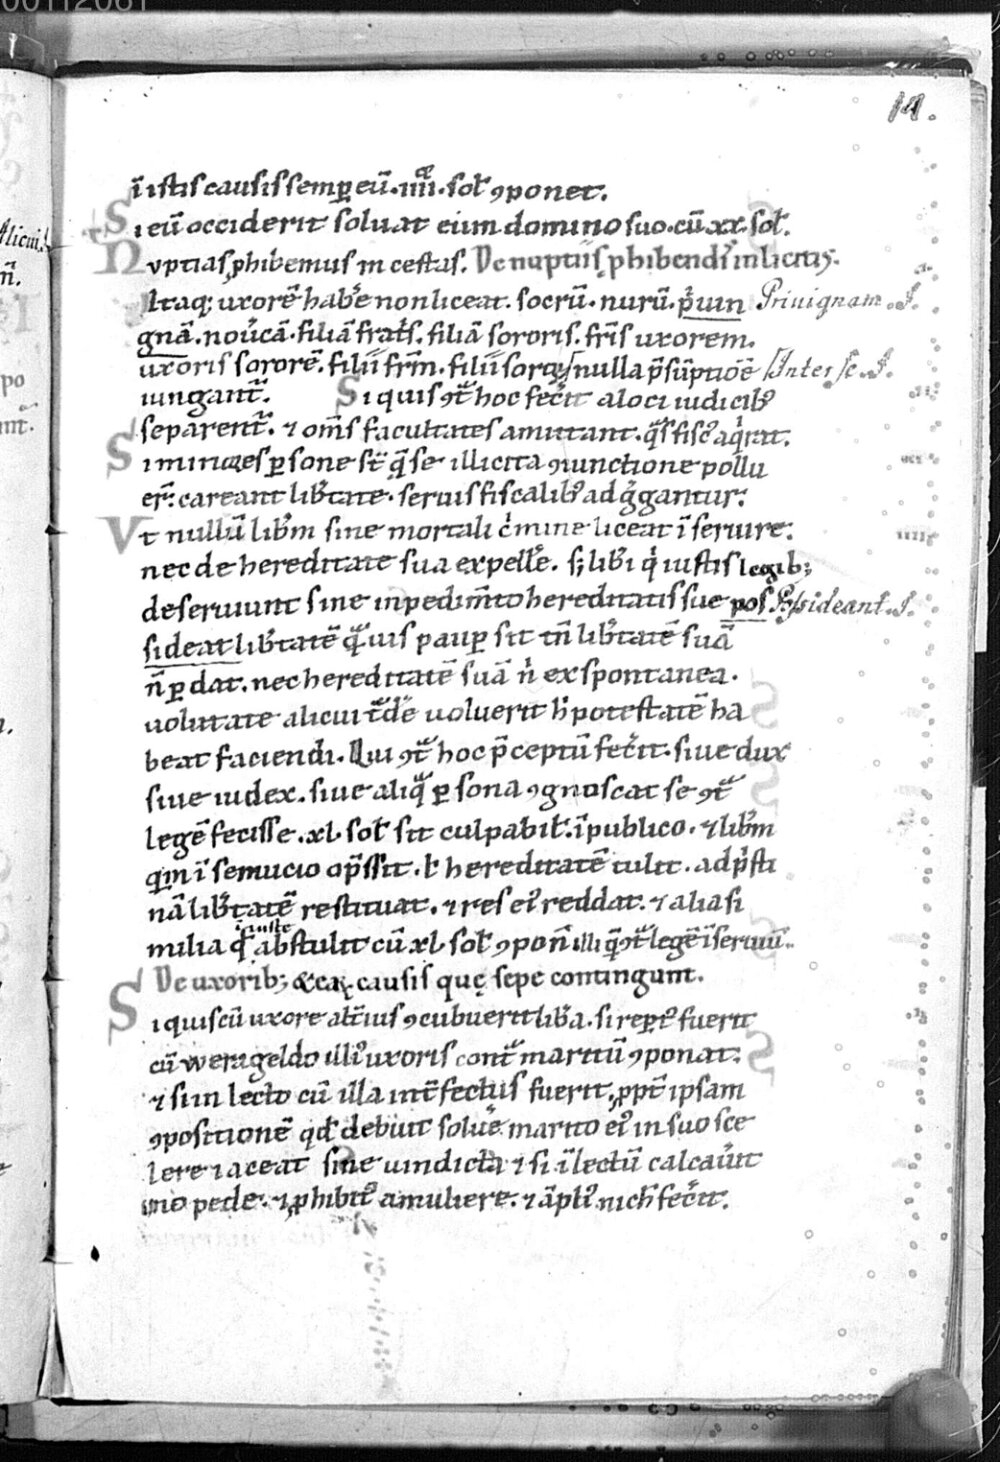 00112061
14.
ī istis causis semꝑ eū .iiii. sol̛ ꝯponet.
Si eū occiderit soluat eum domino suo. cū xx. sol̛.
Nvptias ꝓhibemus incestas. De nuptiis ꝓhibendis inlicitis.
Itaq; uxorē habe͛ non liceat. socrū. nurū. p̍uin Priuignam. I.
gnā. nouͨcā. filiā frat̄s. filiā sororis. fr̄is uxorem.
uxoris sororē. filii fr̄m. filii sorоꝝ nulla p̄sūptiōe Inter se. I.
iungant᷑. Si quis ꝯt̄ hoc fec̄it a loci iudicib;
separent᷑. ⁊ om̄s facultates amittant. q̄s fisc᷒ aq̍rat.
Si minores ꝑsone st̄ q̄ se illicita ꝯiunctione pollu
er̄. careant lib̄tate. seruis fiscalib; adg̍gantur.
Vt nullū lib̄m sine mortali c̍mine liceat īseruire.
nec de hereditate sua expelle͛. s; lib̄i q̍ iustis legib;
deseruiunt sine inpedim̄to hereditatis sue pos Possideant. I.
sideat lib̄tatē q̄uis paup̱ sit tn̄ lib̄tatē suā
n̄ ꝑdat. nec hereditatē suā n̍ ex spontanea.
uolutate alicui t̄de͛ uoluerit h̄ potestatē ha
beat faciendi. Qui ꝯt̄ hoc p̄ceptū fec̄it. siue dux
siue iudex. siue aliq̄ ꝑsona ꝯgnoscat se ꝯt̄
legē fecisse. xl. sol̛ sit culpabil̛. ī publico. ⁊ lib̄m
quē ī semucio op̄ss̄it. l̛ hereditatē tulit. ad p̍sti
nā lib̄tatē restituat. ⁊ res ei᷒ reddat. ⁊ alia si
iniuste
milia q̄ abstulit cū xl. sol̛ ꝯpon̄ illi quē ꝯt̄ legē īseruiū.
De uxorib; & eaꝝ causis quę sepe contingunt.
Si quis cū uxore alt̄ius ꝯcubuerit lib̄a. si rep̱t᷒ fuerit
cū werageldo illi᷒ uxoris cont̄ maritū ꝯponat.
⁊ si in lecto cū illa int̄fectus fuerit, ꝓpt̄ ipsam
ꝯpositionē qd̄ debuit solue͛ marito ei᷒ in suo sce
lere iaceat sine uindicta ⁊ si ī lectū calcau̍it
uno pede. ⁊ ꝓhibit᷒ a muliere. ⁊ āpli᷒ nich̄ fec̄it.